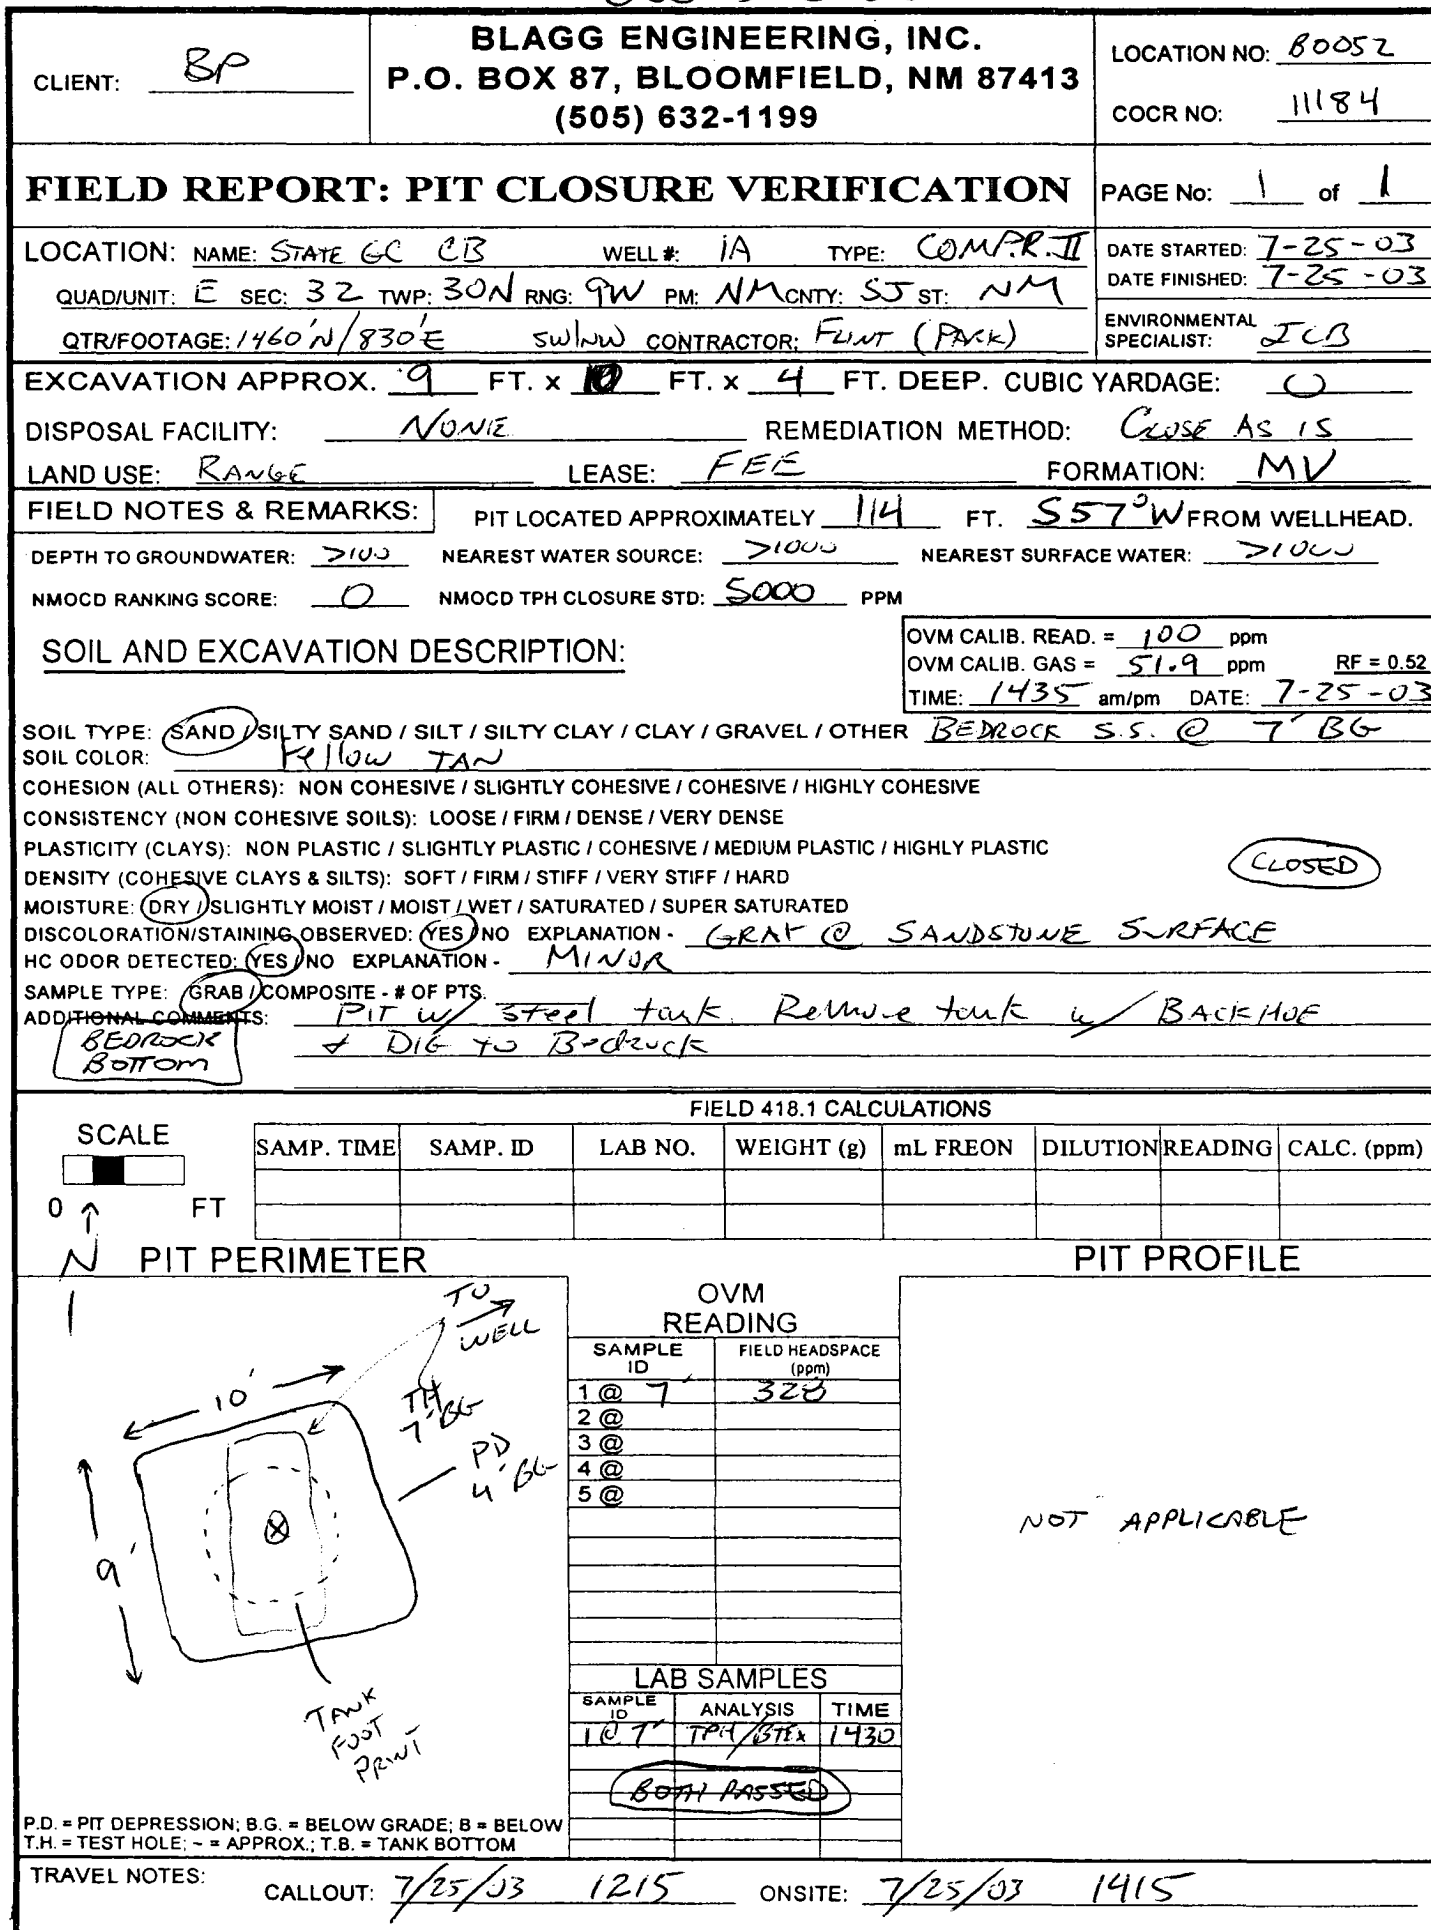 BLAGG ENGINEERING, INC.
CLIENT: BP
P.O. BOX 87, BLOOMFIELD, NM 87413
(505) 632-1199
LOCATION NO: B0052
COCR NO: 11184
FIELD REPORT: PIT CLOSURE VERIFICATION
PAGE No: 1 of 1
LOCATION: NAME: STATE GC CB WELL #: 1A TYPE: COMP.R.II
DATE STARTED: 7-25-03
DATE FINISHED: 7-25-03
QUAD/UNIT: E SEC: 32 TWP: 30N RNG: 9W PM: NM CNTY: SJ ST: NM
QTR/FOOTAGE: 1460'N/830'E SW/NW CONTRACTOR: FLINT (PACK)
ENVIRONMENTAL SPECIALIST: JCB
EXCAVATION APPROX. 9 FT. x 10 FT. x 4 FT. DEEP. CUBIC YARDAGE: 0
DISPOSAL FACILITY: NONE REMEDIATION METHOD: CLOSE AS IS
LAND USE: RANGE LEASE: FEE FORMATION: MV
FIELD NOTES & REMARKS: PIT LOCATED APPROXIMATELY 114 FT. S57°W FROM WELLHEAD.
DEPTH TO GROUNDWATER: >100 NEAREST WATER SOURCE: >1000 NEAREST SURFACE WATER: >1000
NMOCD RANKING SCORE: 0 NMOCD TPH CLOSURE STD: 5000 PPM
SOIL AND EXCAVATION DESCRIPTION:
OVM CALIB. READ. = 100 ppm
OVM CALIB. GAS = 51.9 ppm RF = 0.52
TIME: 1435 am/pm DATE: 7-25-03
SOIL TYPE: SAND / SILTY SAND / SILT / SILTY CLAY / CLAY / GRAVEL / OTHER BEDROCK S.S. @ 7' BG
SOIL COLOR: Yellow TAN
COHESION (ALL OTHERS): NON COHESIVE / SLIGHTLY COHESIVE / COHESIVE / HIGHLY COHESIVE
CONSISTENCY (NON COHESIVE SOILS): LOOSE / FIRM / DENSE / VERY DENSE
PLASTICITY (CLAYS): NON PLASTIC / SLIGHTLY PLASTIC / COHESIVE / MEDIUM PLASTIC / HIGHLY PLASTIC
CLOSED
DENSITY (COHESIVE CLAYS & SILTS): SOFT / FIRM / STIFF / VERY STIFF / HARD
MOISTURE: DRY / SLIGHTLY MOIST / MOIST / WET / SATURATED / SUPER SATURATED
DISCOLORATION/STAINING OBSERVED: YES / NO EXPLANATION - GRAY @ SANDSTONE SURFACE
HC ODOR DETECTED: YES / NO EXPLANATION - MINOR
SAMPLE TYPE: GRAB / COMPOSITE - # OF PTS.
ADDITIONAL COMMENTS: PIT w/ steel tank. Remove tank w/ BACKHOE
& DIG to Bedrock
BEDROCK
BOTTOM
FIELD 418.1 CALCULATIONS
SCALE
0 FT
SAMP. TIME SAMP. ID LAB NO. WEIGHT (g) mL FREON DILUTION READING CALC. (ppm)
N
PIT PERIMETER
PIT PROFILE
TO WELL
10'
TH 7' BG
PD 4' BG
9'
TANK FOOT PRINT
OVM READING
SAMPLE ID FIELD HEADSPACE (ppm)
1 @ 7' 328
2 @
3 @
4 @
5 @
NOT APPLICABLE
LAB SAMPLES
SAMPLE ID ANALYSIS TIME
1@7' TPH/BTEX 1430
BOTH PASSED
P.D. = PIT DEPRESSION; B.G. = BELOW GRADE; B = BELOW
T.H. = TEST HOLE; ~ = APPROX.; T.B. = TANK BOTTOM
TRAVEL NOTES: CALLOUT: 7/25/03 1215 ONSITE: 7/25/03 1415